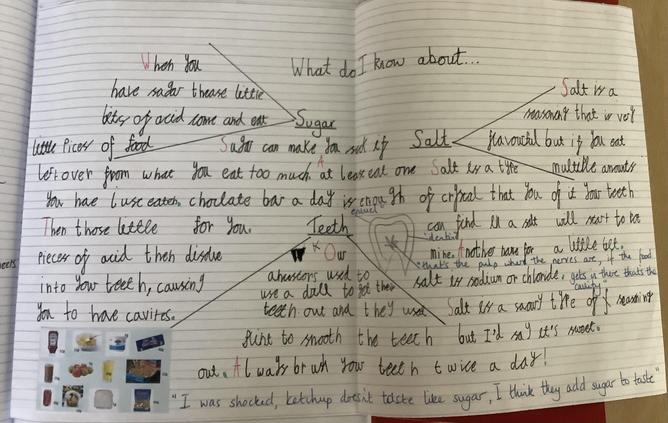 What do I know about...
When you
have sagar thease little
bits of acid come and eat
little pices of food
left over from what you eat
You hae l use eaten.
Then those little
pieces of acid then disolve
into your teeth, causing
you to have cavites.
Sugar
Sugar can make you sick if
too much. At least eat one
choclate bar a day is enough
for you.
Salt
Salt is a
seasoning that is very
flavourful but if you eat
multiple amounts
of it your teeth
will start to be
a little bit.
Salt is a type
of crystal that you
can find in a salt
mine. Another name for
salt is sodium or chloride.
Salt is a savory type of seasoning
but I'd say it's sweet.
Teeth
Our
ancestors used to
use a drill to get their
teeth out and they used
flint to smooth the teeth
out. Always brush your teeth twice a day!
enamel
dentin
that's the pulp where the nerves are, if the food
gets in there thats the
cavity"
"I was shocked, ketchup doesn't taste like sugar, I think they add sugar to taste"